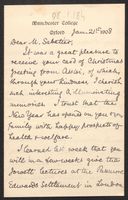 Manchester College
Oxford
Jan. 21st 1908
Dear M. Sabatier,
It was a great pleasure to
receive your card of Christmas
greeting from Assisi, of which,
through your kindness, I cherish
such interesting & illuminating
memories. I trust that the
New Year has opened on you & your
family with happy prospects of
health & welfare.
I learned last week that
in a few weeks give the
Jowett lectures at the Passmore
Edwards Settlement in London